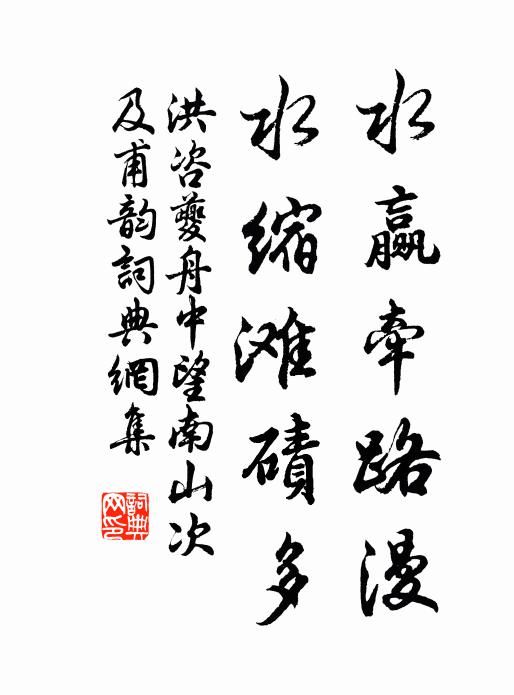 水贏牵路漫
水缩滩磧多
洪咨夔舟中望南山次
及甫韵詞典網集
詞典
网印